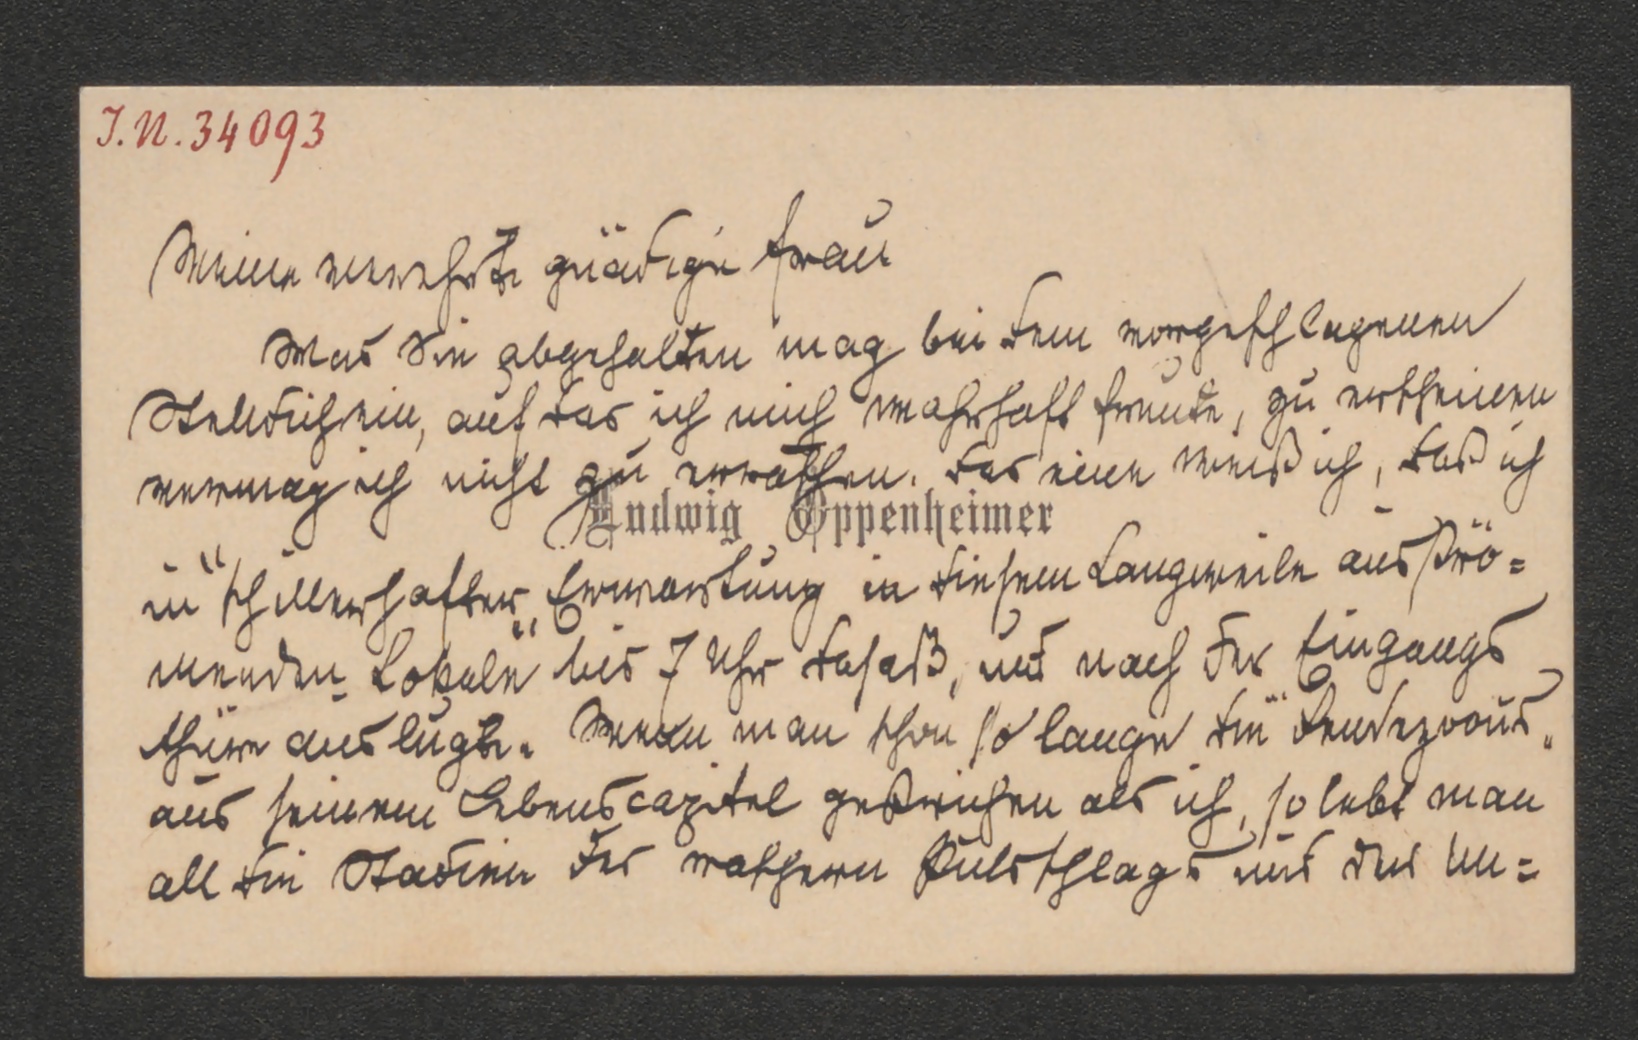 I.N. 34093
Meine verehrte gnädige Frau
Was Sie abgehalten mag bei dem vorgeschlagenen
Stelldichein, auf das ich mich wahrhaft freute, zu erscheinen
vermag ich nicht zu errathen. Das eine weiß ich, daß ich
Ludwig Oppenheimer
in "schillerhafter" Erwartung in diesem Langweile ausströ=
menden "Lokale" bis 7 Uhr dasaß, und nach der Eingangs
thüre auslugte. Wenn man schon so lange die "Rendezvous"
aus seinem Lebenscapitel gestrichen als ich, so lebt man
all die Stadien des rascheren Pulsschlags und der Un=